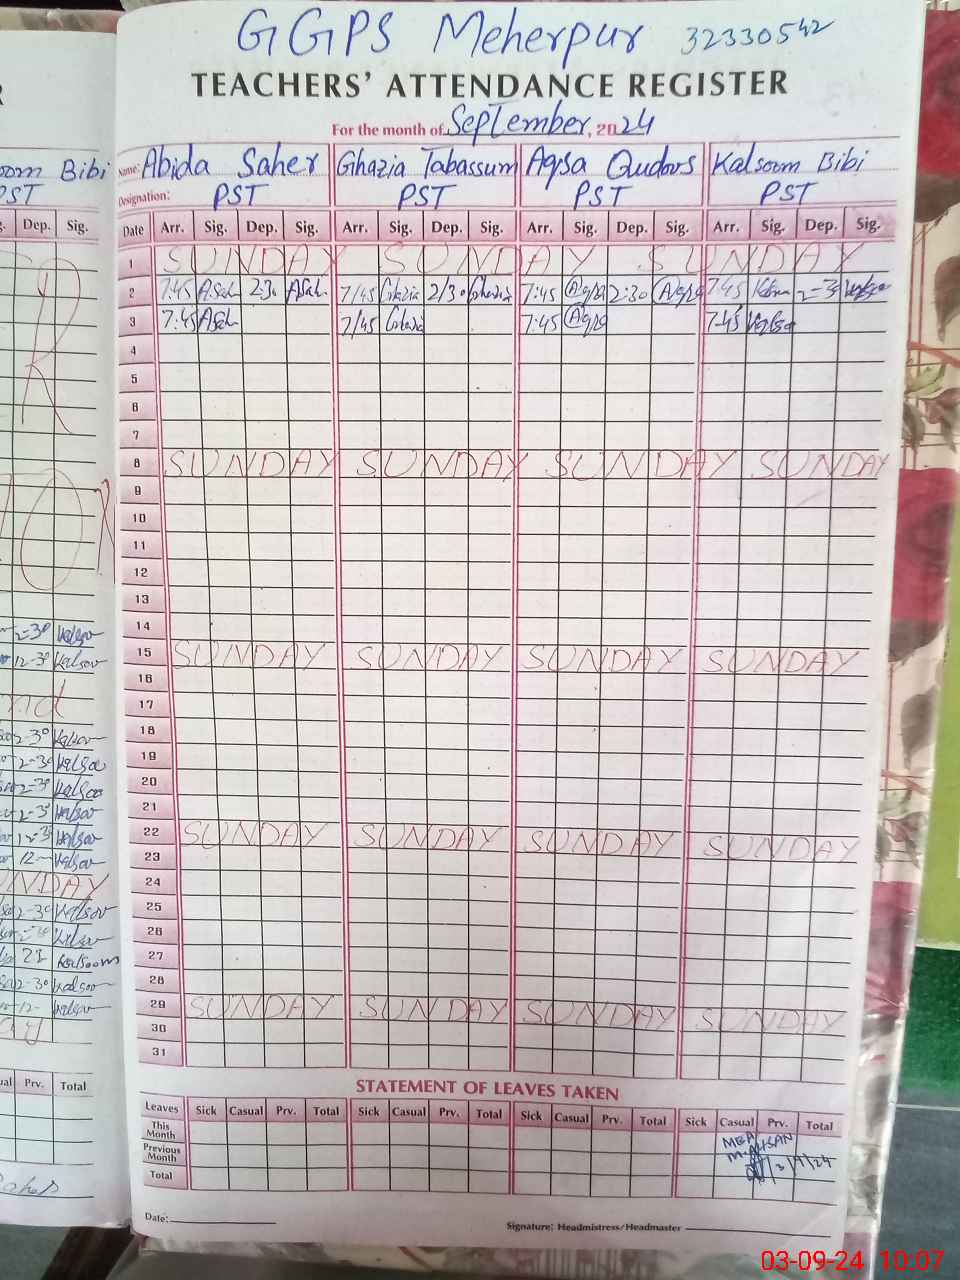 GGPS Meherpur 32330542
TEACHERS' ATTENDANCE REGISTER
For the month of September, 2024
Name: Abida Saher Ghazia Tabassum Aqsa Qudoos Kalsoom Bibi
Designation: PST PST PST PST
Date Arr. Sig. Dep. Sig. Arr. Sig. Dep. Sig. Arr. Sig. Dep. Sig. Arr. Sig. Dep. Sig.
1 SUNDAY SUNDAY SUNDAY
2 7:45 A.Sah 2:30 A.Sah 7/45 Ghazia 2/30 Ghazia 7:45 Aqsa 2:30 Aqsa 7-45 2-30
3 7:45 A.Sah 7/45 Ghazia 7:45 Aqsa 7-45
4
5
6
7
8 SUNDAY SUNDAY SUNDAY SUNDAY
9
10
11
12
13
14
15 SUNDAY SUNDAY SUNDAY SUNDAY
16
17
18
19
20
21
22 SUNDAY SUNDAY SUNDAY SUNDAY
23
24
25
26
27
28
29 SUNDAY SUNDAY SUNDAY SUNDAY
30
31
STATEMENT OF LEAVES TAKEN
Leaves Sick Casual Prv. Total Sick Casual Prv. Total Sick Casual Prv. Total Sick Casual Prv. Total
This Month
Previous Month
Total
MEA
M. AHSAN
3/9/24
Date:
Signature: Headmistress/Headmaster
Bibi
PST
Dep. Sig.
Prv. Total
03-09-24 10:07